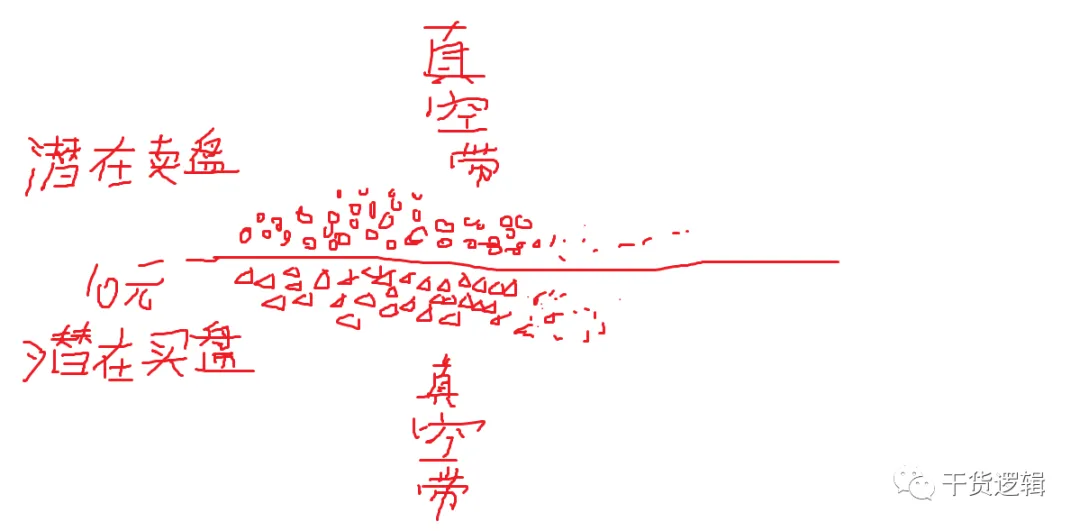 真空带
潜在卖盘
10元
潜在买盘
真空带
干货逻辑